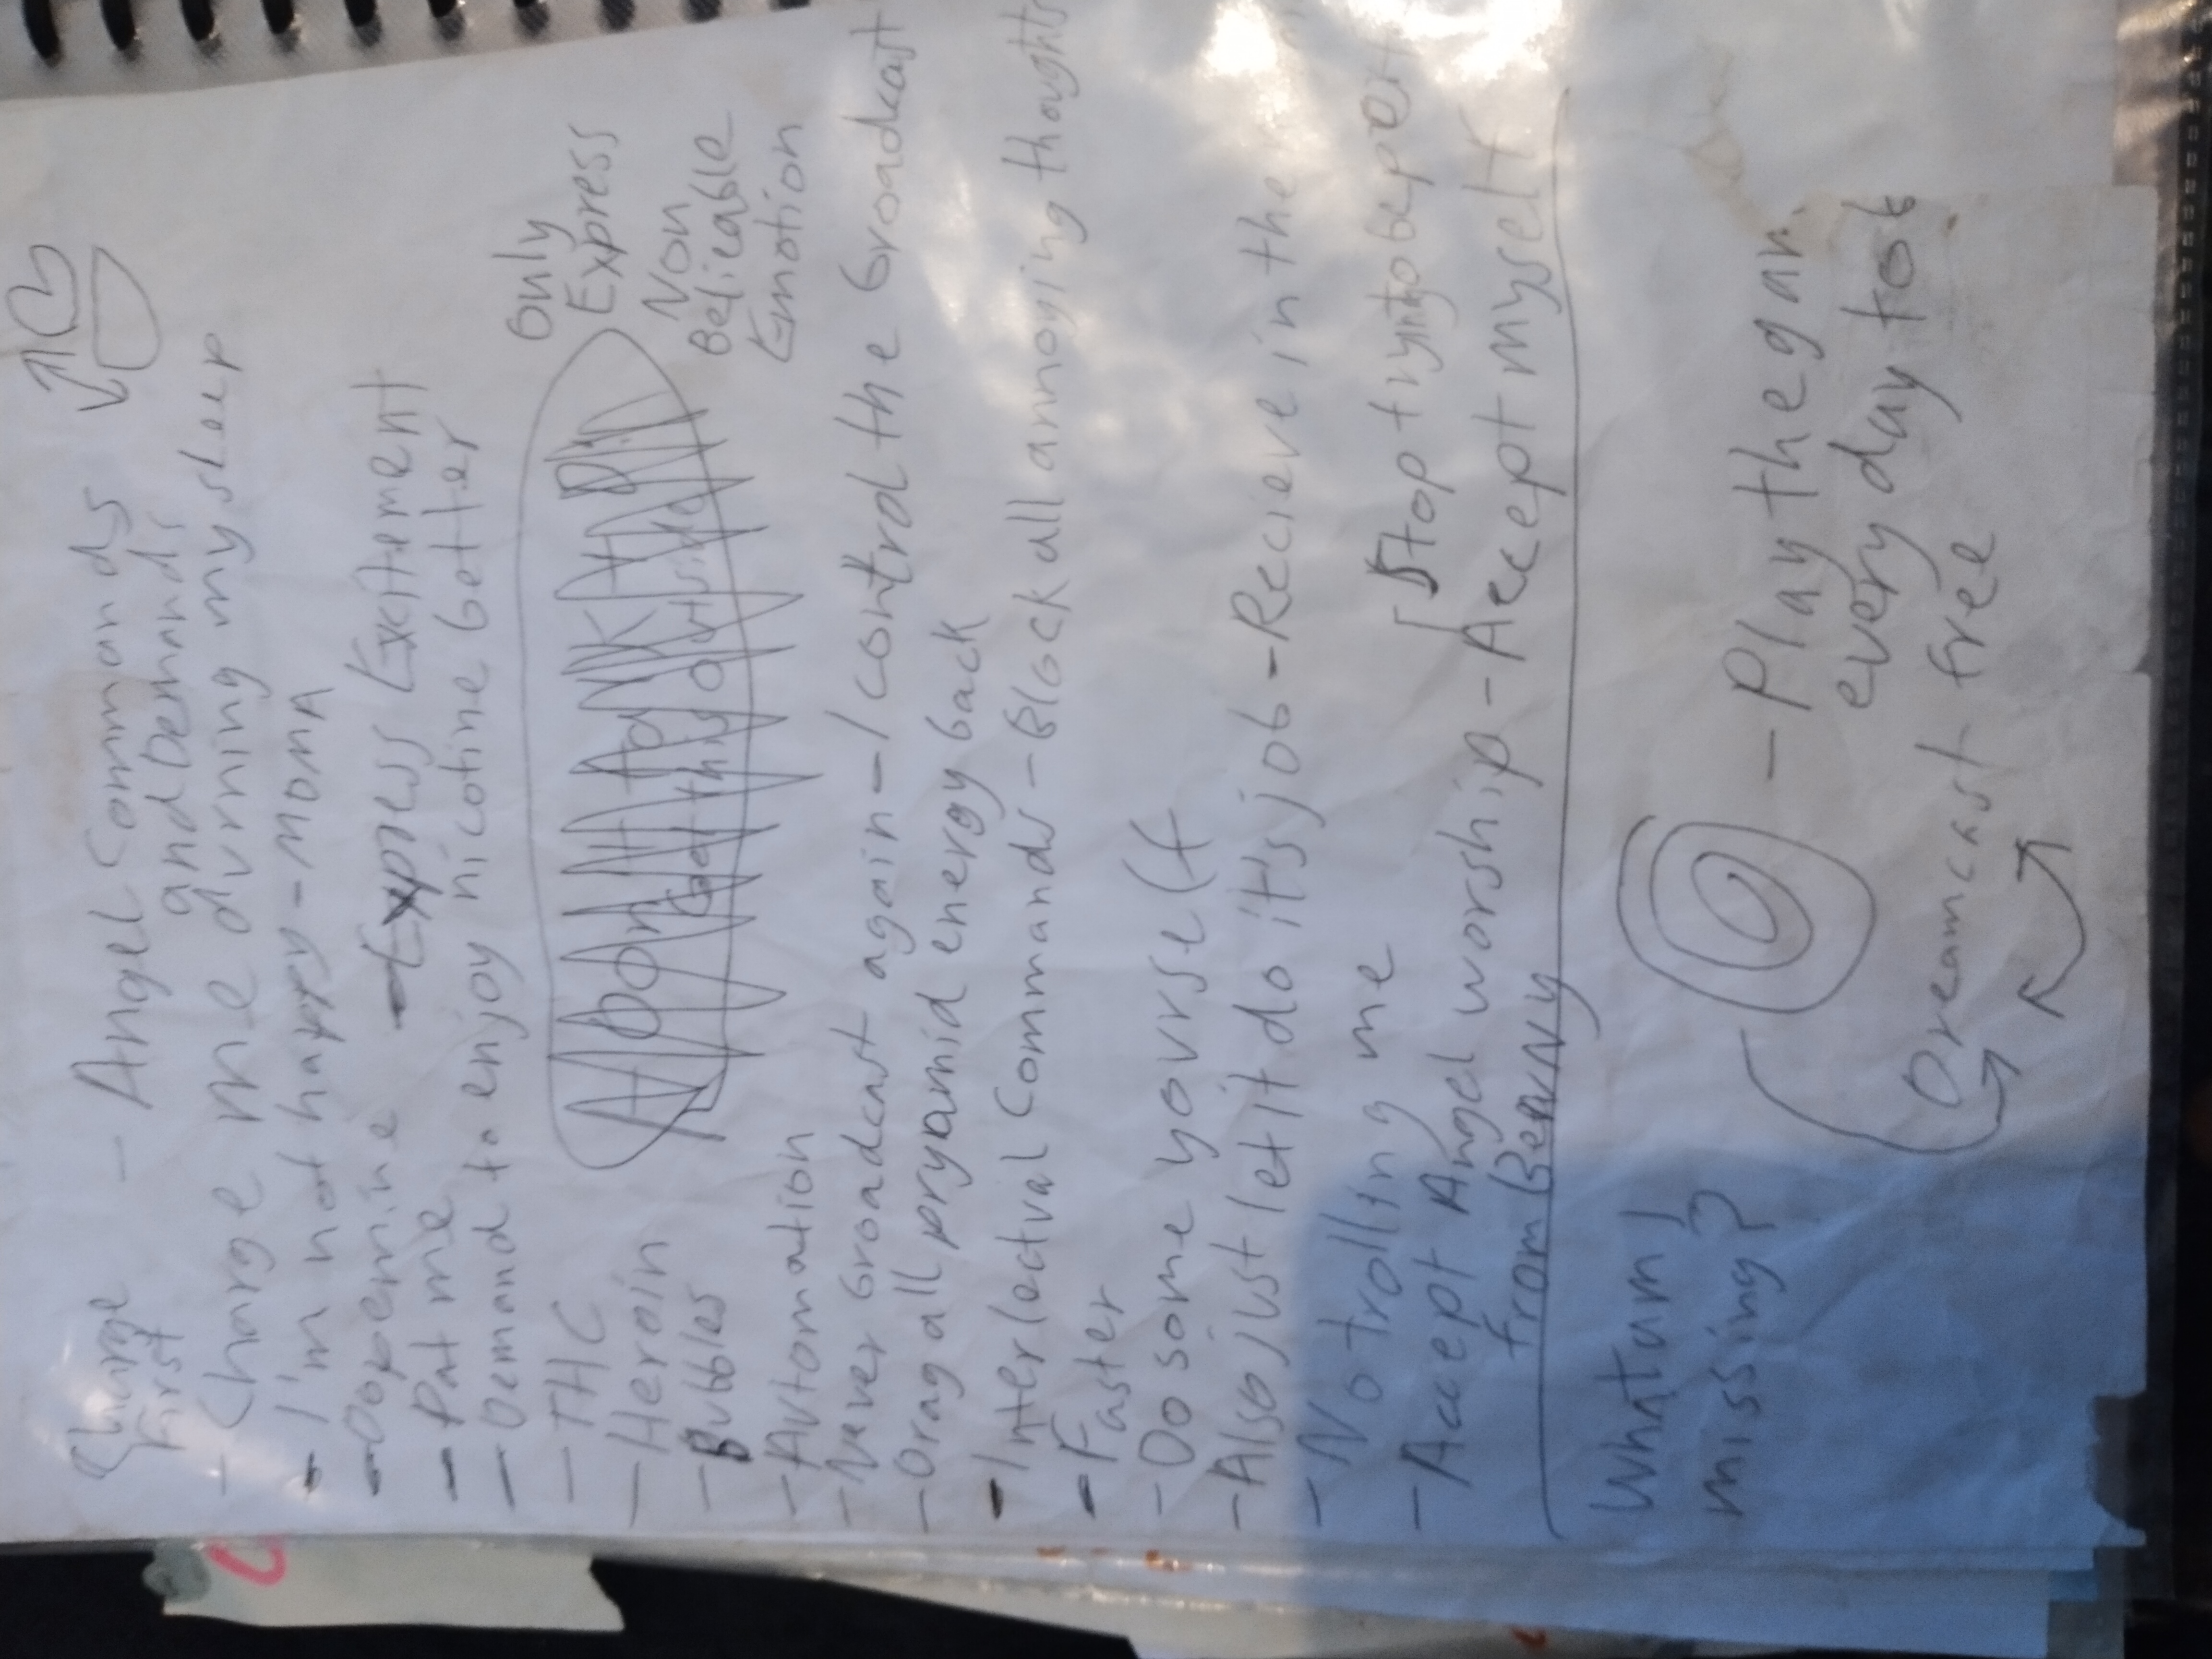 Charge
First
- Angel Commands
and Demands
- Charge me durning my sleep
- I'm not happy - MOMA
- Dopemine - Express Excitement
- Pat me
- Demand to enjoy nicotine better
- THC
- Heroin
- Bubbles
Get this outside
Only
Express
Non
Belieable
Emotion
- Automation
- Never broadcast again - I control the broadcast
- Drag all pryamid energy back
- Interlectual Commands - Block all annoging thoughts
- Faster
- Do some yourself
- Also just let it do it's job - Recieve in the
- No trolling me
Stop tryintobeper
- Accept Angel worship - Accept myself
from Benny
What am I
missing?
- Play the gam
every day to b
Dreamcast free